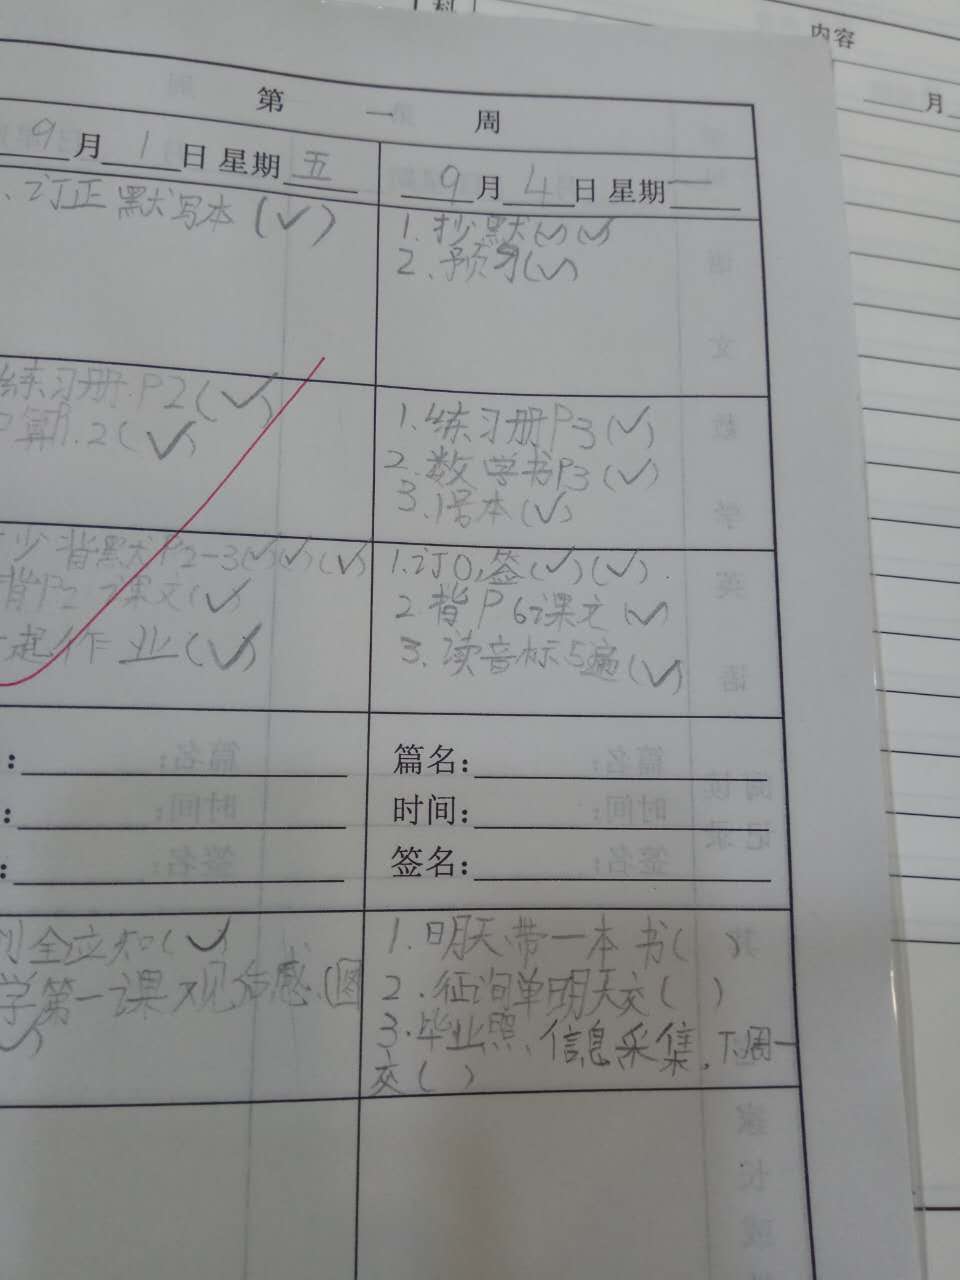 科
内容
月
第 一 周
9月1日 星期五
9月4日 星期一
、订正默写本(✓)
1.抄默(✓)(✓)
2.预习(✓)
练习册.P2(✓)
口算.2(✓)
1.练习册P3(✓)
2.数学书P3(✓)
3.1号本(✓)
背默P2-3(✓)(✓)(✓)
背P2 课文(✓)
一起作业(✓)
1.订0,签(✓)(✓)
2.背P6课文(✓)
3.读音标5遍(✓)
:
:
:
篇名:
时间:
签名:
全立知(✓)
学第一课观后感.(图
✓)
1.明天带一本书( )
2.征询单明天交( )
3.毕业照.信息采集.下周一
交( )